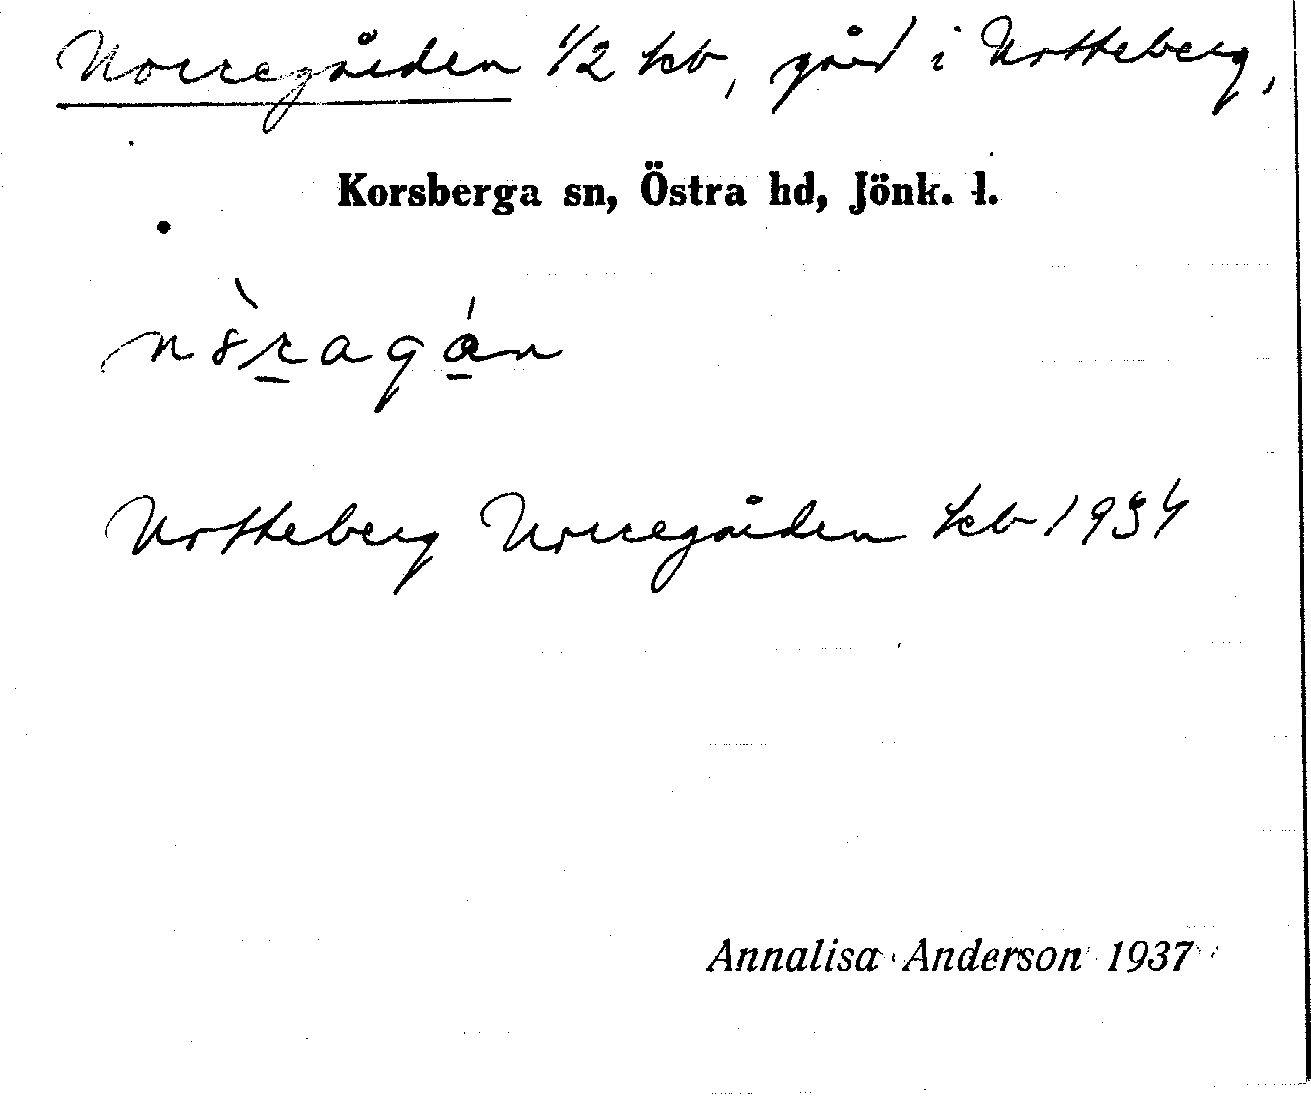 Norregården 1/2 kb, gård i Notteberg,
Korsberga sn, Östra hd, Jönk. l.
Notteberg Norregården kb 1934
Annalisa Anderson 1937